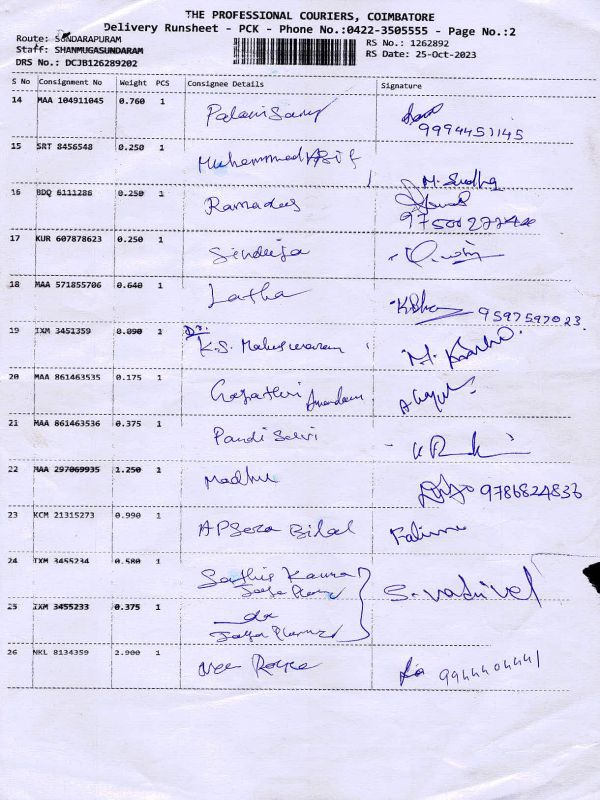 THE PROFESSIONAL COURIERS, COIMBATORE
Delivery Runsheet - PCK - Phone No.:0422-3505555 - Page No.:2
Route: SUNDARAPURAM RS No.: 1262892
Staff: SHANMUGASUNDARAM RS Date: 25-Oct-2023
DRS No.: DCJB126289202
S No Consignment No Weight PCS Consignee Details Signature
14 MAA 104911045 0.760 1 Palanisamy
9994451145
15 SRT 8456548 0.250 1 Muhammed Asif
M. Sudha
16 BDQ 6111286 0.250 1 Ramadas
17 KUR 607878623 0.250 1
18 MAA 571855706 0.640 1 Latha 9597597023
19 IXM 3451359 0.090 1 Dr.
K.S. Maheswaran
20 MAA 861463535 0.175 1 Gayathri
21 MAA 861463536 0.375 1 Pandi Selvi
22 MAA 297069935 1.250 1 Madhu 9786824836
23 KCM 21315273 0.990 1 Bilal Fatima
24 IXM 3455234 0.580 1 S. Vadivel
25 IXM 3455233 0.375 1 do
26 NKL 8134359 2.900 1 9944404441